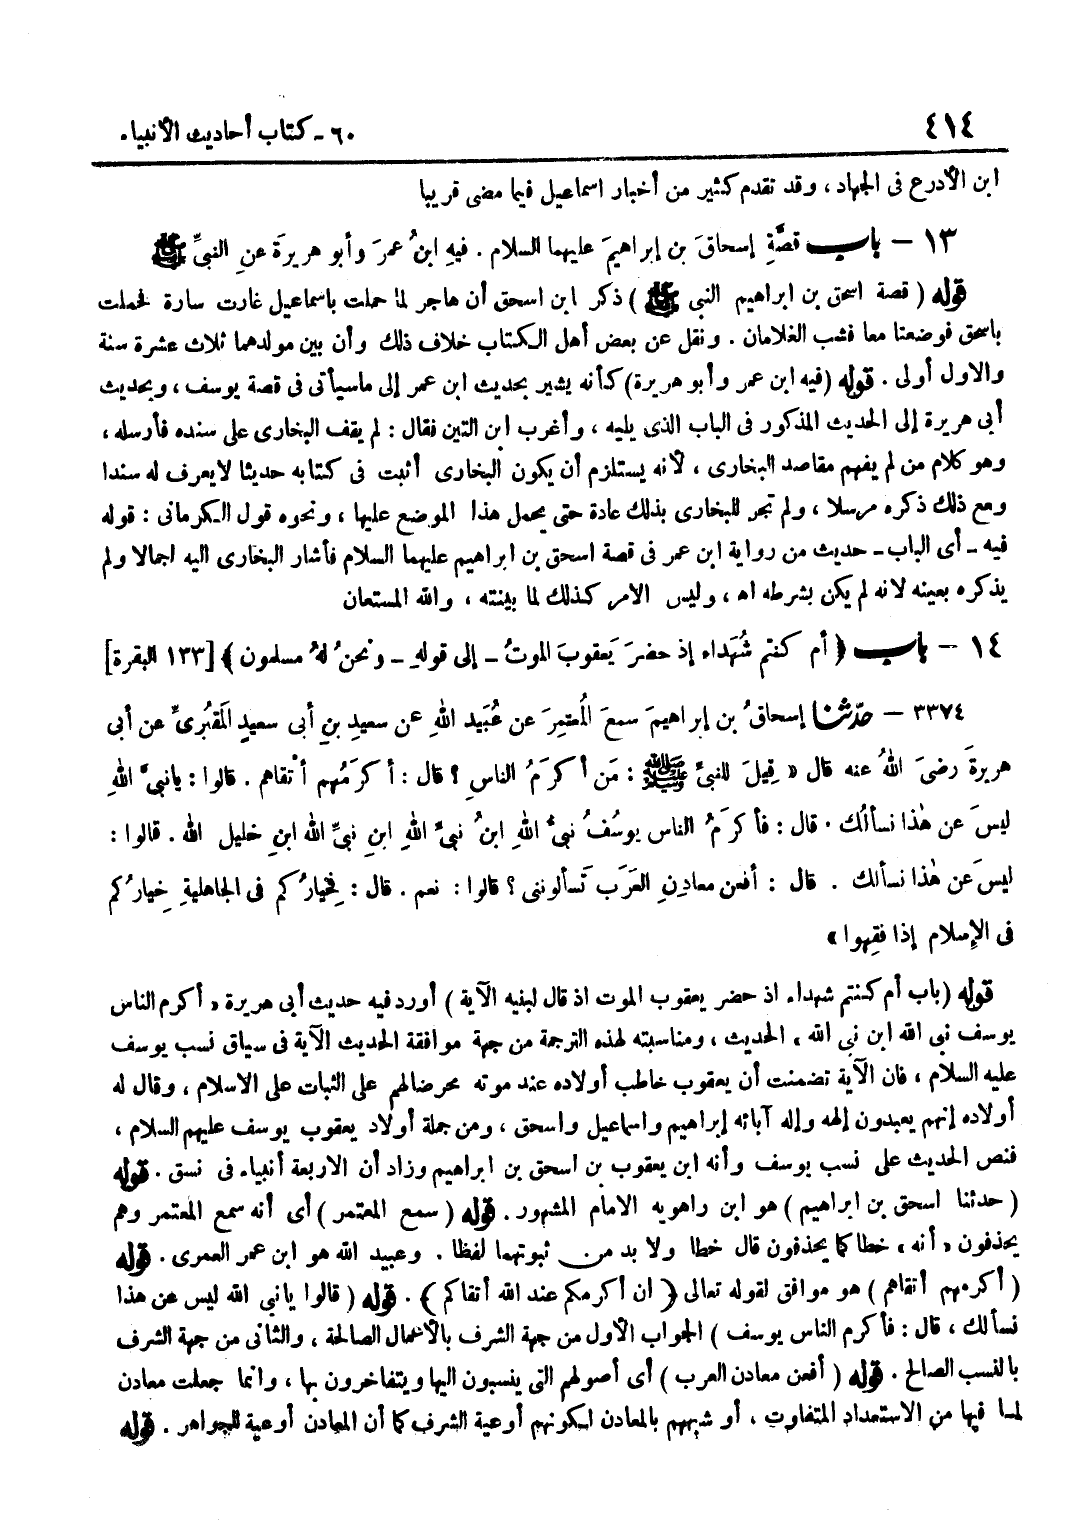 ٤١٤
٦٠ - كتاب أحاديث الأنبياء
ابن الأدرع فى الجهاد ، وقد تقدم كثير من أخبار اسماعيل فيما مضى قريبا
١٣ - باب قصَّةِ إسحاقَ بن إبراهيمَ عليهما السلام . فيهِ ابنُ عمرَ وأبو هريرةَ عنِ النبىِّ ﷺ
قوله ( قصة اسحق بن ابراهيم النبى ﷺ ) ذكر ابن اسحق أن هاجر لما حملت باسماعيل غارت سارة فحملت
باسحق فوضعتا معا فشب الغلامان . ونقل عن بعض أهل الكتاب خلاف ذلك وأن بين مولدهما ثلاث عشرة سنة
والاول أولى . قوله (فيه ابن عمر وأبو هريرة) كأنه يشير بحديث ابن عمر إلى ماسيأتى فى قصة يوسف ، وبحديث
أبى هريرة إلى الحديث المذكور فى الباب الذى يليه ، وأغرب ابن التين فقال : لم يقف البخارى على سنده فأرسله ،
وهو كلام من لم يفهم مقاصد البخارى ، لأنه يستلزم أن يكون البخارى أثبت فى كتابه حديثا لايعرف له سندا
ومع ذلك ذكره مرسلا ، ولم تجر للبخارى بذلك عادة حتى يحمل هذا الموضع عليها ، ونحوه قول الكرمانى : قوله
فيه ـ أى الباب ـ حديث من رواية ابن عمر فى قصة اسحق بن ابراهيم عليهما السلام فأشار البخارى اليه اجمالا ولم
يذكره بعينه لانه لم يكن بشرطه اه ، وليس الامر كذلك لما بينته ، والله المستعان
١٤ - باب ﴿ أم كنتم شُهَداء إذ حضرَ يَعقوبَ الموتُ ـ إلى قولهِ ـ ونحنُ لهُ مسلمون ﴾ [ ١٣٣ البقرة ]
٣٣٧٤ - حدّثنا إسحاقُ بن إبراهيمَ سمعَ المُعتمِرَ عن عُبَيد اللهِ عن سعيدِ بنِ أبى سعيدٍ المَقبُرىِّ عن أبى
هريرةَ رضىَ اللهُ عنه قال « قِيلَ للنبىِّ ﷺ : مَن أكرَمُ الناسِ ؟ قال : أكرَمُهم أتقاهم . قالوا : يانبىَّ اللهِ
ليسَ عن هٰذا نسألُك . قال : فأكرَمُ الناس يوسُفُ نبىُّ اللهِ ابنُ نبىِّ اللهِ ابنِ نبىِّ اللهِ ابنِ خليل الله . قالوا :
ليسَ عن هٰذا نسألك . قال : أفعن معادِنِ العرَب تَسألوننى ؟ قالوا : نعم . قال : فخِيارُكم فى الجاهليةِ خِيارُكم
فى الإسلام إذا فقِهوا »
قوله (باب أم كنتم شهداء اذ حضر يعقوب الموت اذ قال لبنيه الآية ) أورد فيه حديث أبى هريرة « أكرم الناس
يوسف نبى الله ابن نبى الله » الحديث ، ومناسبته لهذه الترجمة من جهة موافقة الحديث الآية فى سياق نسب يوسف
عليه السلام ، فان الآية تضمنت أن يعقوب خاطب أولاده عند موته محرضا لهم على الثبات على الاسلام ، وقال له
أولاده إنهم يعبدون إلهه وإله آبائه إبراهيم واسماعيل واسحق ، ومن جملة أولاد يعقوب يوسف عليهم السلام ،
فنص الحديث على نسب يوسف وأنه ابن يعقوب بن اسحق بن ابراهيم وزاد أن الاربعة أنبياء فى نسق . قوله
( حدثنا اسحق بن ابراهيم ) هو ابن راهويه الامام المشهور . قوله ( سمع المعتمر ) أى أنه سمع المعتمر وهم
يحذفون « أنه » خطا كما يحذفون قال خطا ولا بد من ثبوتهما لفظا . وعبيد الله هو ابن عمر العمرى . قوله
( أكرمهم أتقاهم ) هو موافق لقوله تعالى ﴿ ان أكرمكم عند الله أتقاكم ﴾ . قوله ( قالوا يانبي الله ليس عن هذا
نسألك ، قال : فأكرم الناس يوسف ) الجواب الأول من جهة الشرف بالأعمال الصالحة ، والثانى من جهة الشرف
بالنسب الصالح . قوله ( أفعن معادن العرب ) أى أصولهم التى ينسبون اليها ويتفاخرون بها ، وانما جعلت معادن
لما فيها من الاستعداد المتفاوت ، أو شبههم بالمعادن لكونهم أوعية الشرف كما أن المعادن أوعية للجواهر . قوله